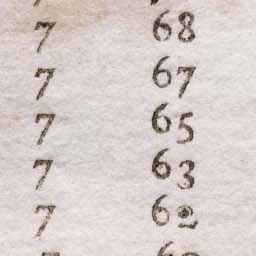 7 68
7 67
7 65
7 63
7 62